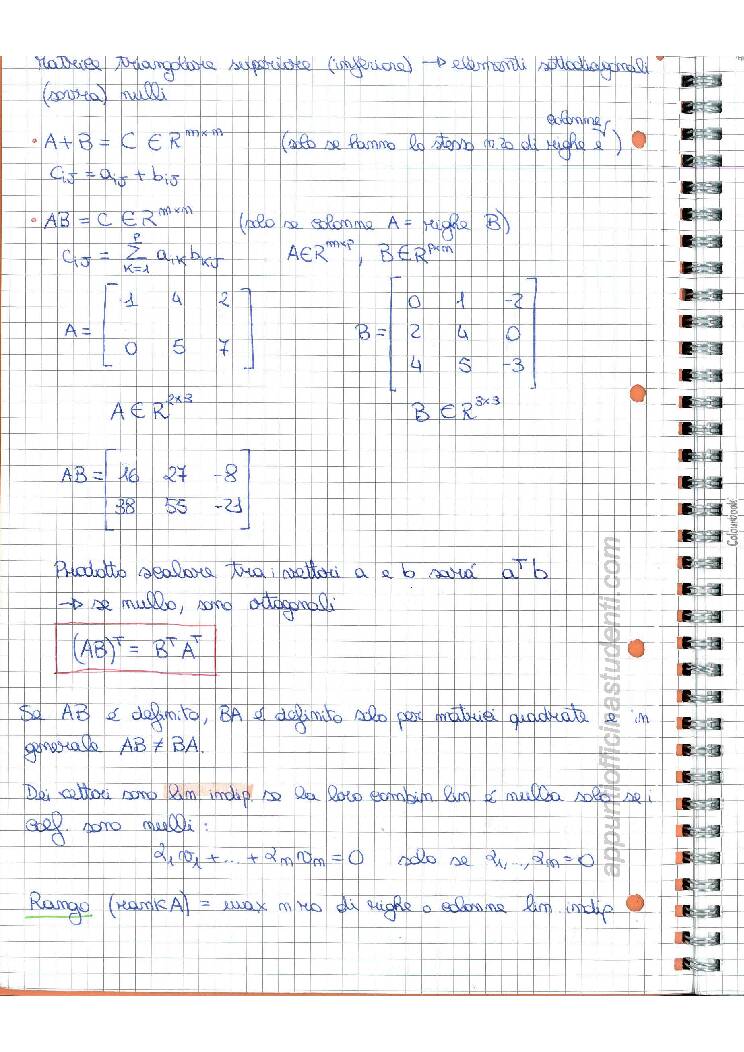 Matrice triangolare superiore (inferiore) → elementi sottodiagonali
(sovra) nulli
• A+B = C ∈ R^{m×n} (solo se hanno lo stesso nro di righe e colonne)
C_{ij} = a_{ij} + b_{ij}
• AB = C ∈ R^{m×n} (solo se colonne A = righe B)
C_{ij} = Σ_{k=1}^{p} a_{ik} b_{kj} A∈R^{m×p}, B∈R^{p×n}
A = [1 4 2; 0 5 7] B = [0 1 -2; 2 4 0; 4 5 -3]
A ∈ R^{2×3} B ∈ R^{3×3}
AB = [16 27 -8; 38 55 -21]
Prodotto scalare tra i vettori a e b sará a^T b
→ se nullo, sono ortogonali
(AB)^T = B^T A^T
Se AB é definito, BA é definito solo per matrici quadrate e in
generale AB ≠ BA.
Dei vettori sono lin indip. se la loro combin lin é nulla solo se i
coef. sono nulli:
α_1 v_1 + ... + α_n v_n = 0 solo se α_1, ..., α_n = 0
Rango (rank A) = max nro di righe o colonne lin. indip
appuntiofficinastudenti.com
Colourbook